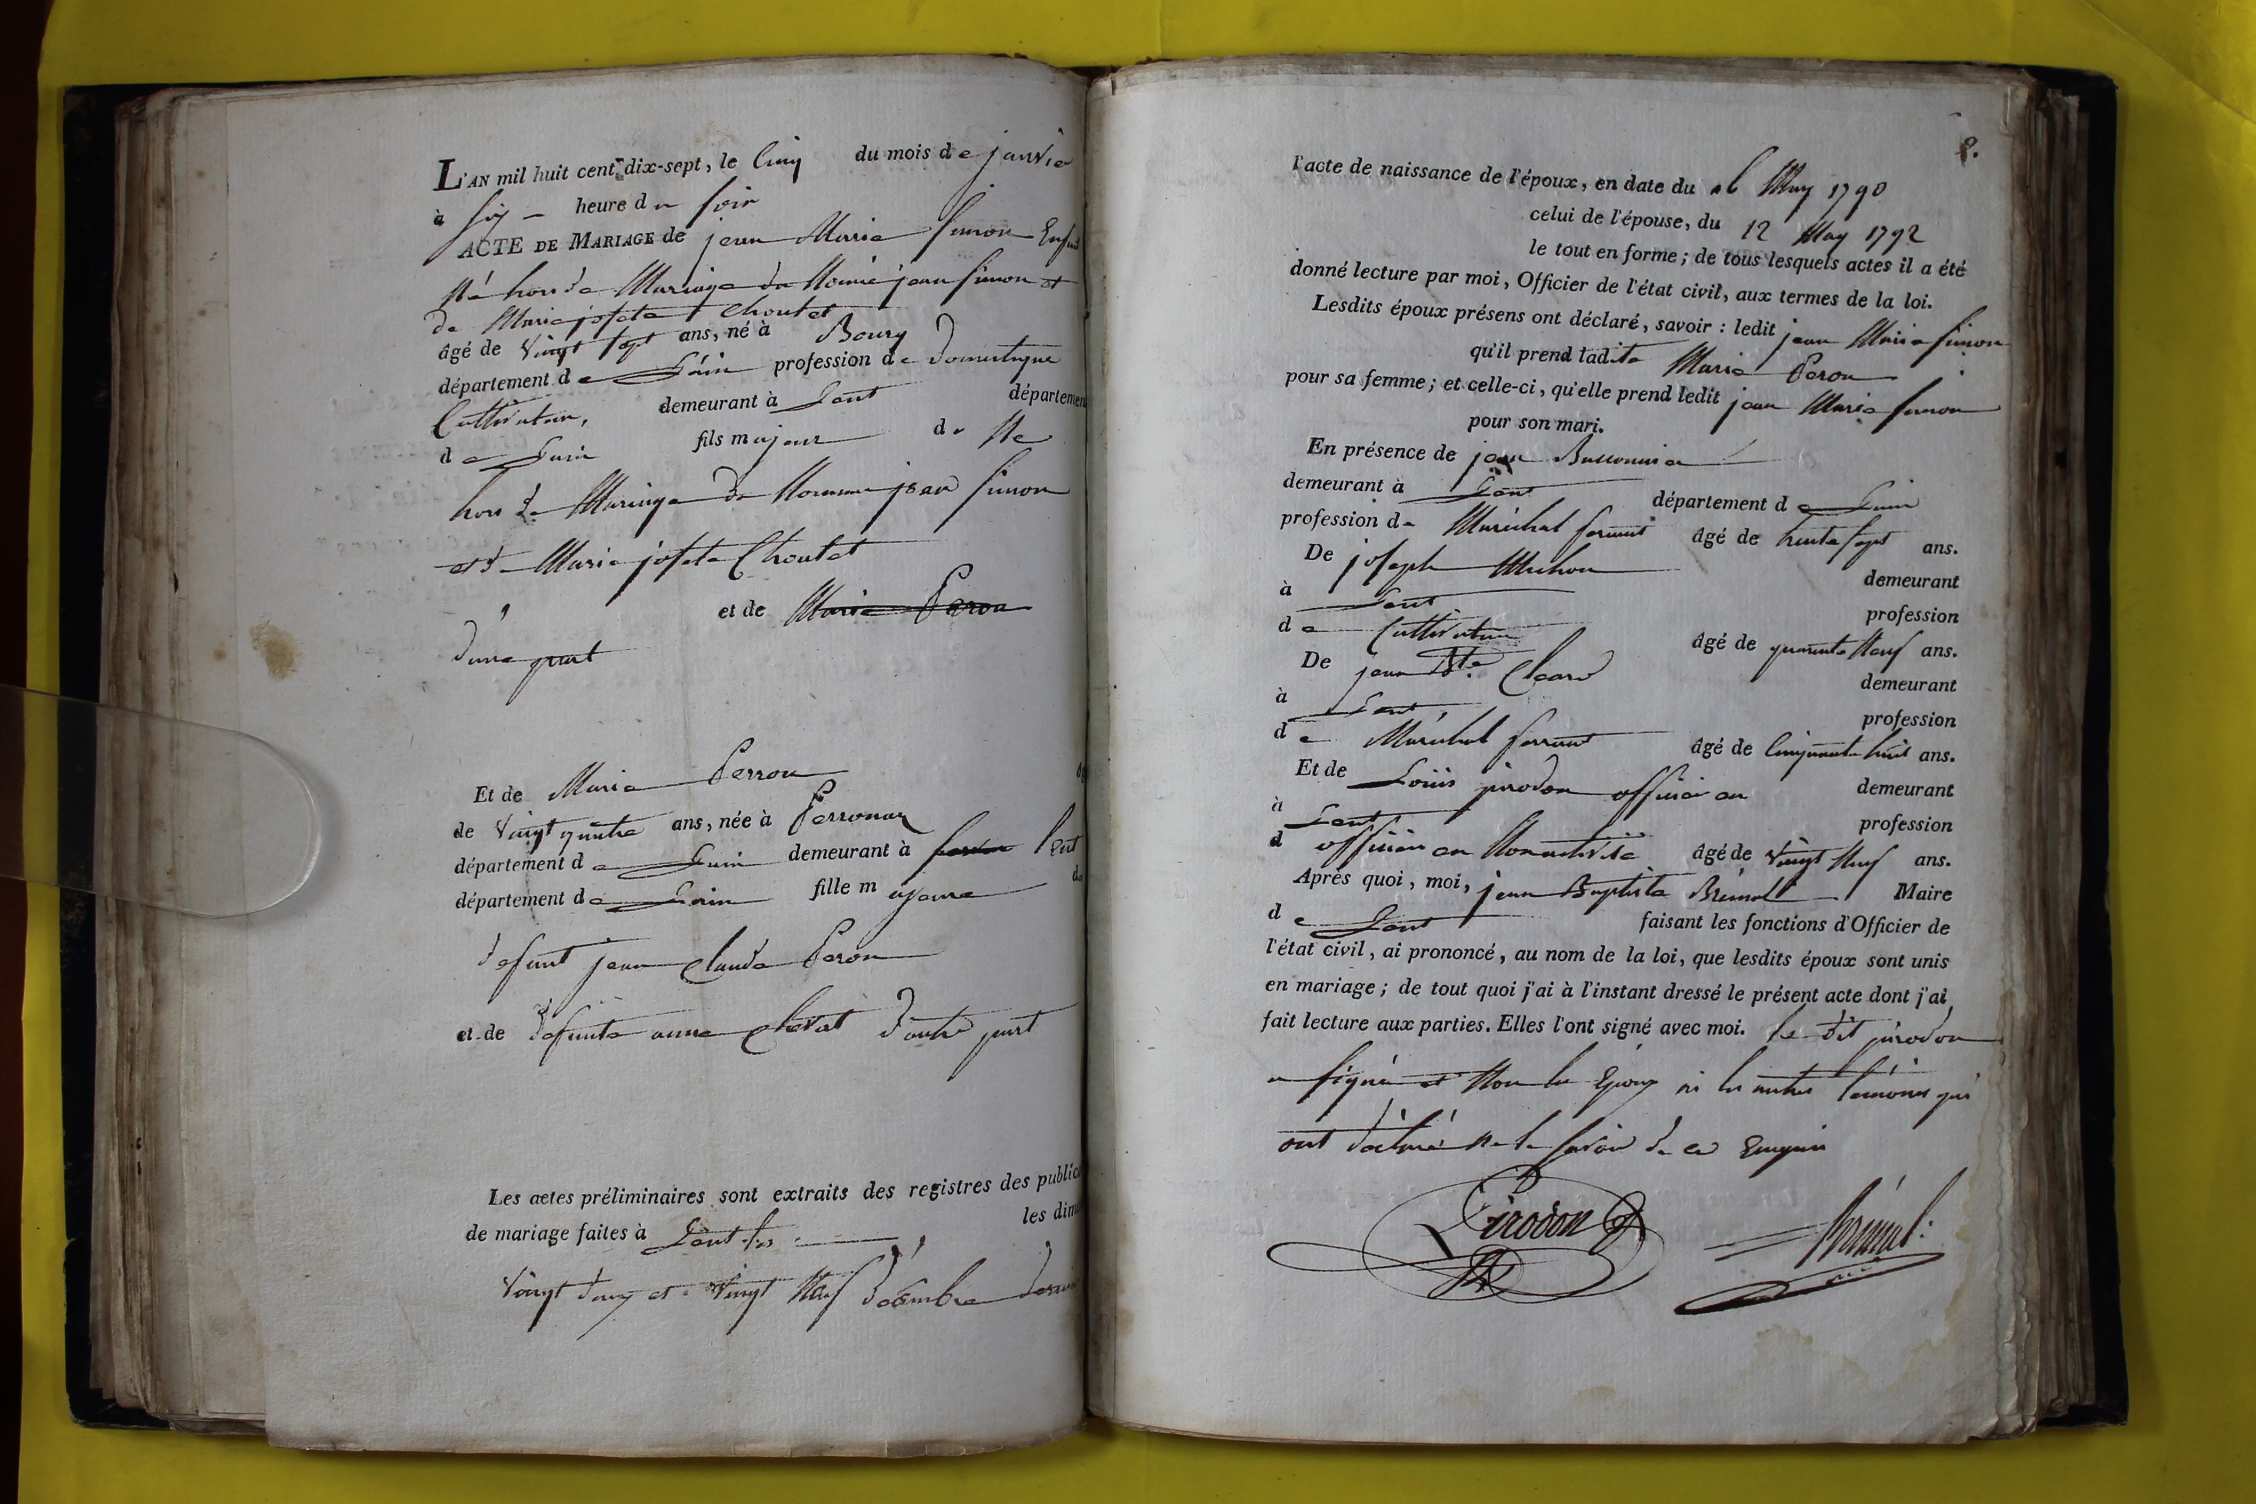 L'AN mil huit cent dix-sept, le Cinq du mois de janvier
à six heure du soir
ACTE DE MARIAGE de jean Marie Simon Enfant
Né hors de Mariage du Nommé jean Simon et
de Marie josete Choutet
âgé de vingt sept ans, né à Bourg
département de Lain profession de domestique
Cultivateur, demeurant à Lent département
de Lain fils majeur de Ne
hors de Mariage de Nommé jean Simon
et de Marie josete Choutet
et de Marie Peron
d'une part
Et de Marie Perron
de vingt quatre ans, née à Perronas
département de Lain demeurant à Lent
département de Lain fille majeure de
defunt jean Claude Peron
et de defunte anne Chevat d'autre part
Les actes préliminaires sont extraits des registres des public
de mariage faites à Lent les les dim
vingt deux et vingt Neuf décembre dernier
8.
l'acte de naissance de l'époux, en date du 26 May 1790
celui de l'épouse, du 12 May 1792
le tout en forme; de tous lesquels actes il a été
donné lecture par moi, Officier de l'état civil, aux termes de la loi.
Lesdits époux présens ont déclaré, savoir : ledit jean Marie Simon
qu'il prend ladite Marie Peron
pour sa femme; et celle-ci, qu'elle prend ledit jean Marie Simon
pour son mari.
En présence de jean
demeurant à Lent département de Lain
profession de Maréchal ferrant âgé de trente sept ans.
De joseph Michon demeurant
à Lent profession
de Cultivateur âgé de quarante Neuf ans.
De jean Bte. Cleard demeurant
à Lent profession
de Maréchal ferrant âgé de Cinquante huit ans.
Et de Louis pirodon officier en demeurant
à Lent profession
d officier en Nonactivité âgé de vingt Neuf ans.
Après quoi, moi, jean Baptiste Maire
de Lent faisant les fonctions d'Officier de
l'état civil, ai prononcé, au nom de la loi, que lesdits époux sont unis
en mariage; de tout quoi j'ai à l'instant dressé le présent acte dont j'ai
fait lecture aux parties. Elles l'ont signé avec moi. Le dit pirodon
a signé et Non les Epoux ni les autres temoins qui
ont déclaré Ne le savoir de ce Enquis
Pirodon